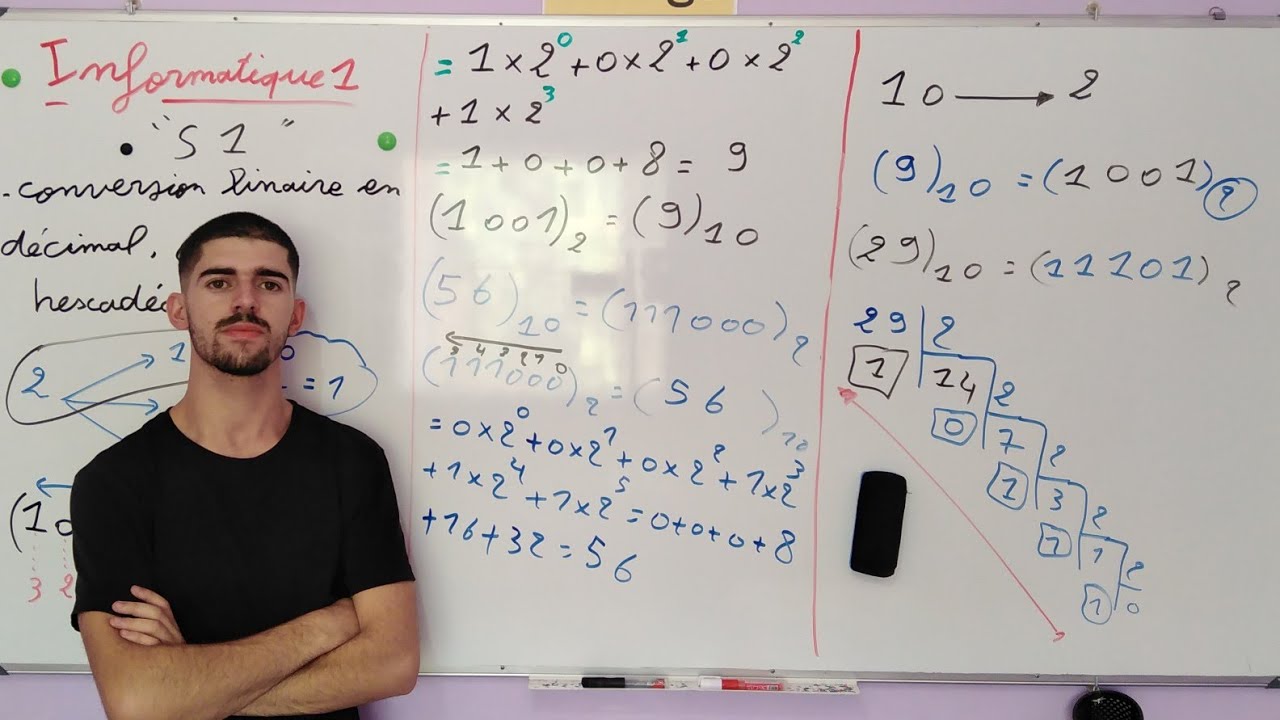 Informatique 1
"S 1"
- conversion binaire en
décimal,
hescadéc
2
1
0
= 1
(10
3 2
= 1 × 2^0 + 0 × 2^1 + 0 × 2^2
+ 1 × 2^3
= 1 + 0 + 0 + 8 = 9
(1001)_2 = (9)_10
(56)_10 = (111000)_2
5 4 3 2 1 0
(111000)_2 = (56)_10
= 0 × 2^0 + 0 × 2^1 + 0 × 2^2 + 1 × 2^3
+ 1 × 2^4 + 1 × 2^5 = 0 + 0 + 0 + 8
+ 16 + 32 = 56
10 → 2
(9)_10 = (1001)_2
(29)_10 = (11101)_2
29 2
1 14 2
0 7 2
1 3 2
1 1 2
1 0